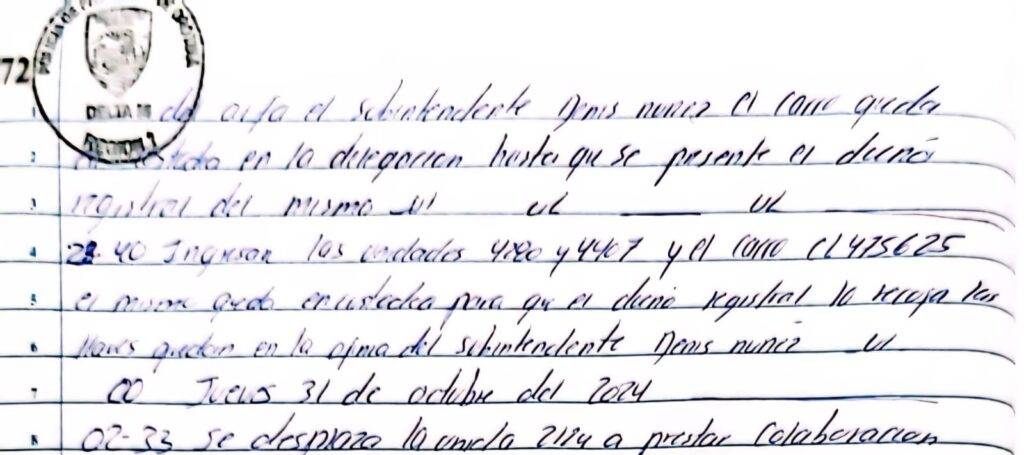 72
DELTA
1 el subintendente Denis nuñez el carro queda
2 en la delegacion hasta qu se presente el dueño
3 registral del mismo ul ul ul
4 40 Ingresan las unidades y 4407 y el carro CL475625
5 el mismo queda en custodia para que el dueño registral lo recoja las
6 llaves quedan en la del subintendente Denis nuñez ul
7 00 Jueves 31 de octubre del 2024
8 02-33 se desplaza la unida a prestar Colaboracion